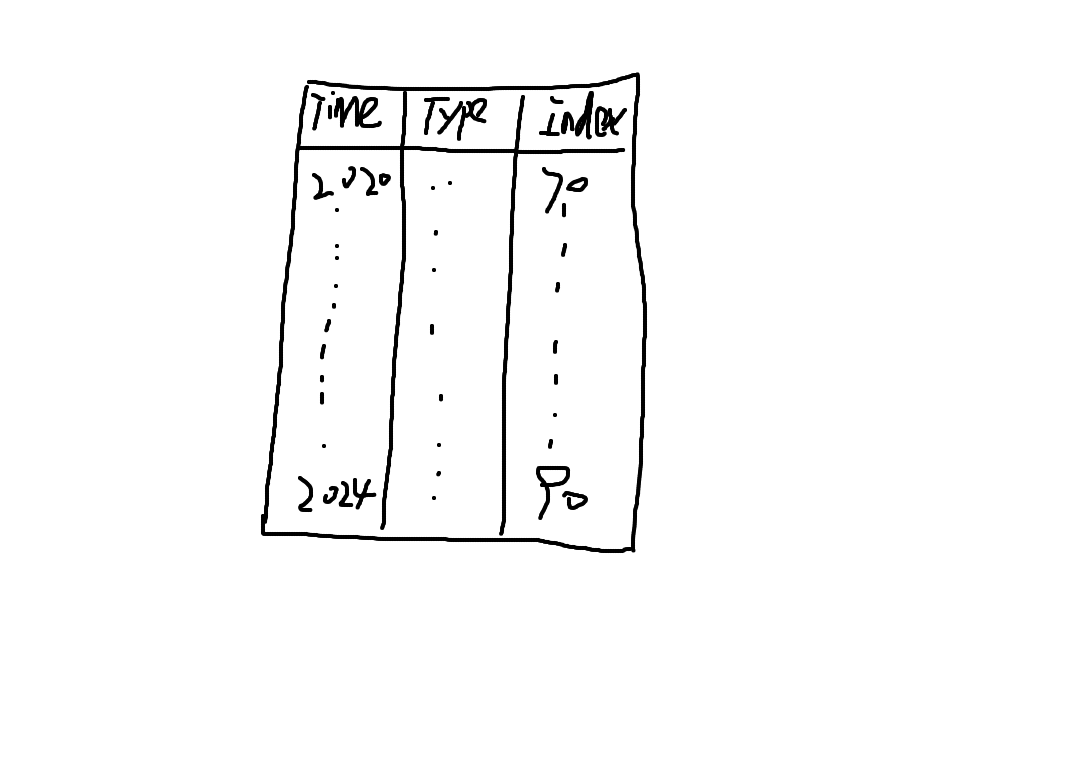 Time Type Index
2020 70
2024 90